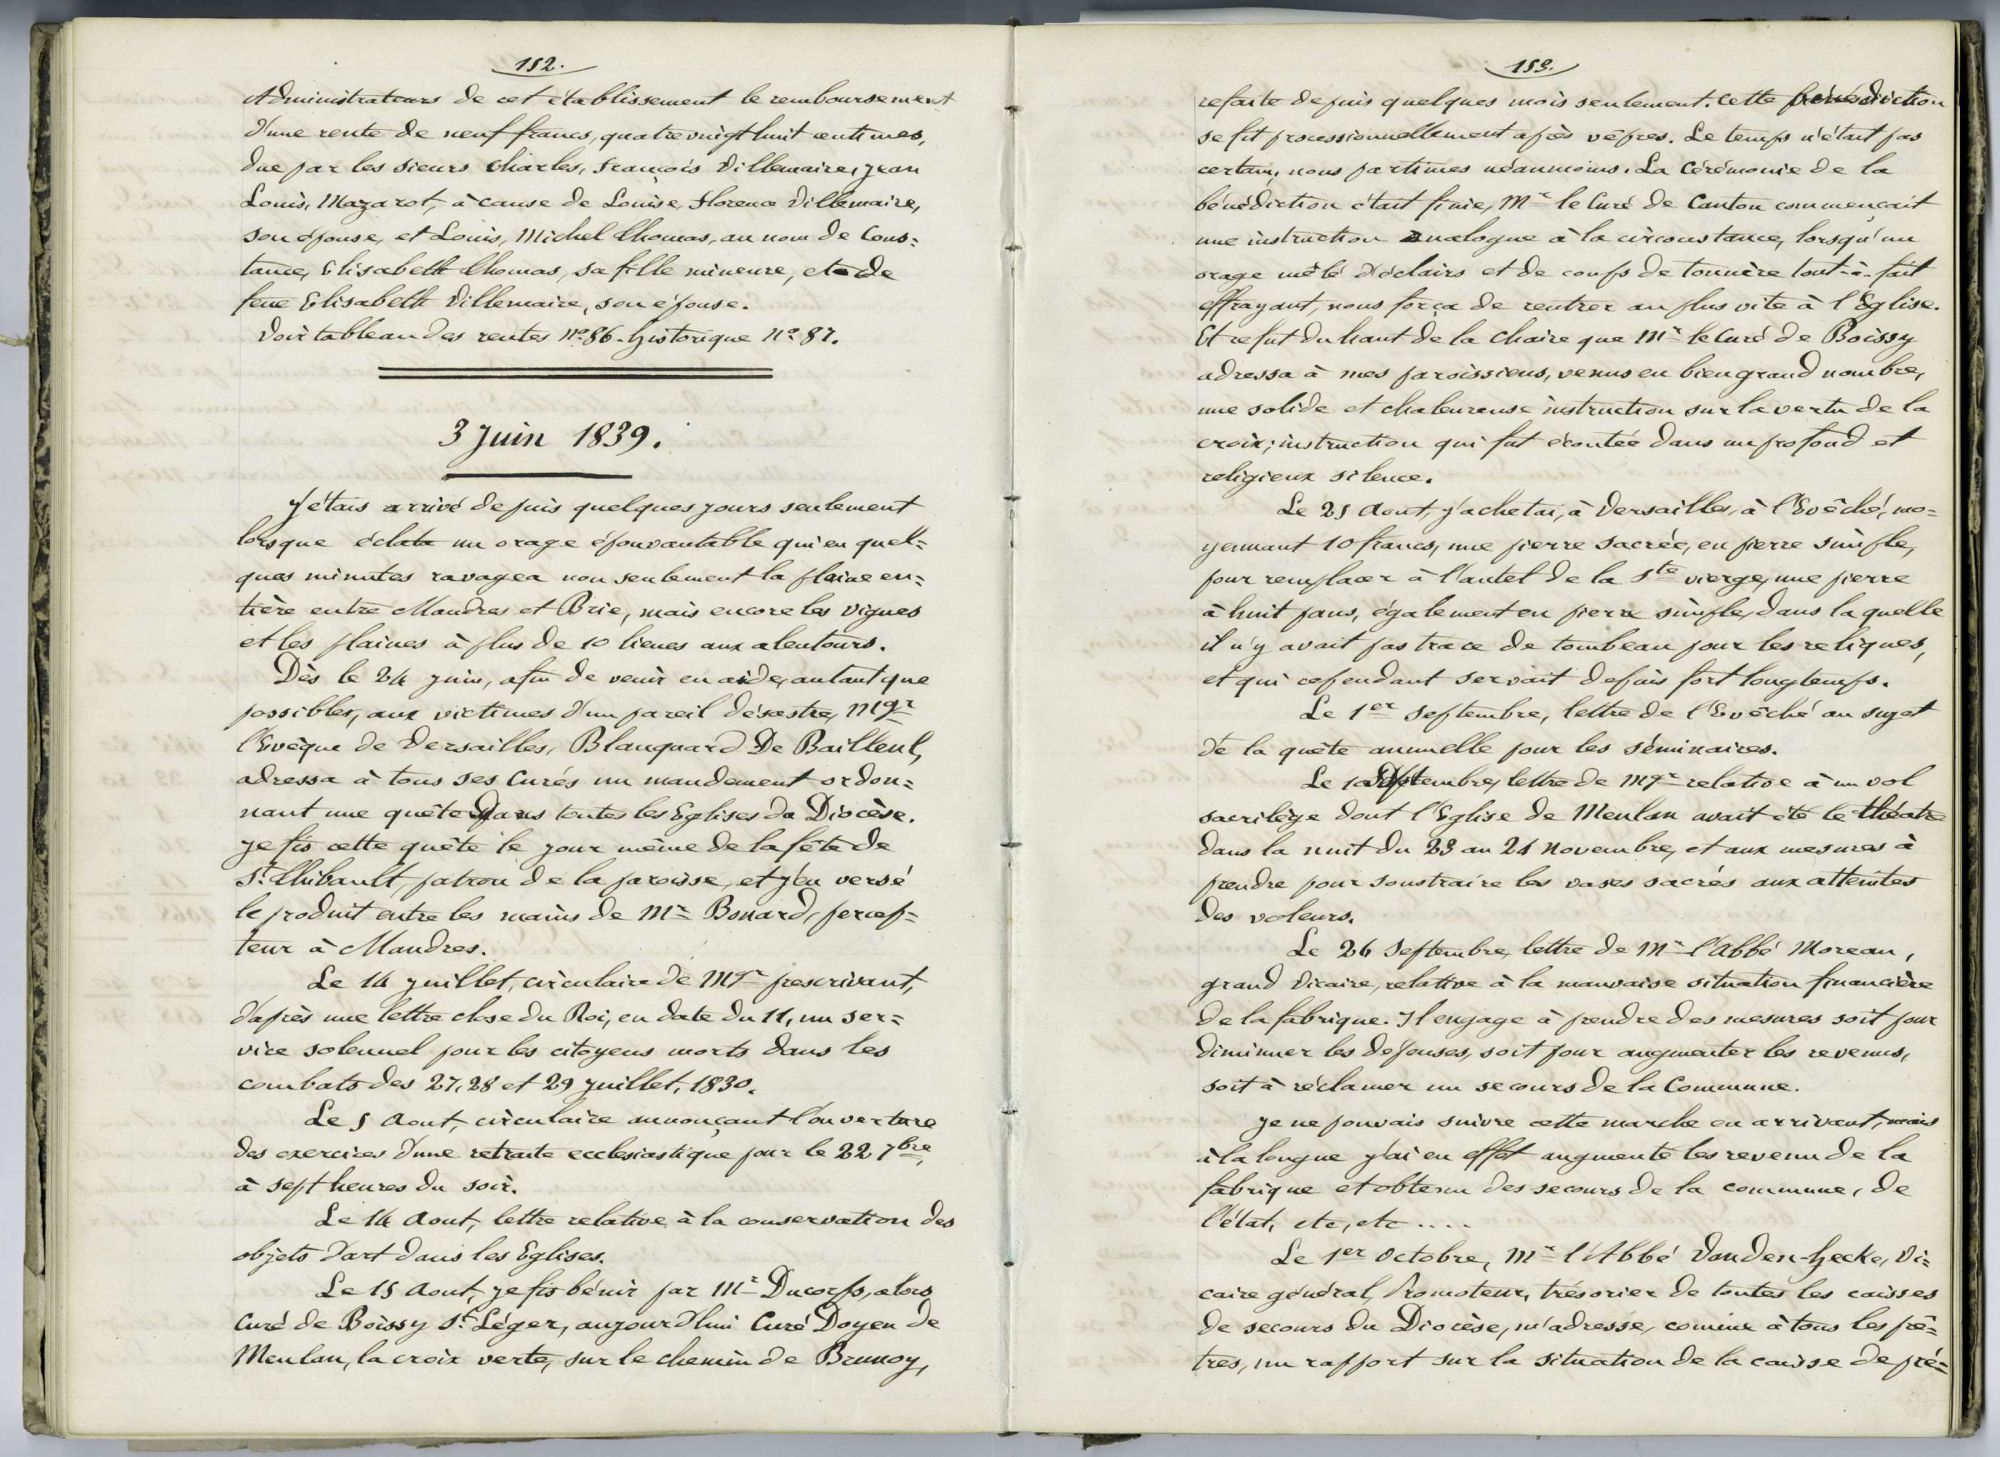 152.
Administrateurs de cet établissement le remboursement
d'une rente de neuf francs, quatre vingt huit centimes,
due par les sieurs Charles, François Villemaire, Jean
Louis, Mazarot, à cause de Louise, Florence Villemaire,
son épouse, et Louis, Michel Thomas, au nom de Cons=
tance, Elisabeth Thomas, sa fille mineure, et de
feue Elisabeth Villemaire, son épouse.
Voir tableau des rentes n° 86 - historique n° 87.
3 Juin 1839.
J'étais arrivé depuis quelques jours seulement
lorsque éclata un orage épouvantable qui en quel=
ques minutes ravagea non seulement la plaine en=
tière entre Mandres et Brie, mais encore les vignes
et les plaines à plus de 10 lieues aux alentours.
Dès le 24 juin, afin de venir en aide, autant que
possibles, aux victimes d'un pareil désastre, Mgr
l'Evêque de Versailles, Blanquard De Bailleul,
adressa à tous ses Curés un mandement ordon=
nant une quête dans toutes les Eglises du Diocèse.
Je fis cette quête le jour même de la fête de
St Thibault, patron de la paroisse, et j'en versé
le produit entre les mains de Mr Bonard, percep=
teur à Mandres.
Le 14 juillet, circulaire de Mgr prescrivant,
d'après une lettre close du Roi, en date du 11, un ser=
vice solennel pour les citoyens morts dans les
combats des 27, 28 et 29 juillet, 1830.
Le 5 Aout, circulaire annonçant l'ouverture
des exercices d'une retraite ecclesiastique pour le 22 7bre,
à sept heures du soir.
Le 14 Aout, lettre relative à la conservation des
objets d'art dans les Eglises.
Le 15 Aout, je fis bénir par Mr Ducorps, alors
Curé de Boissy St Léger, aujourd'hui Curé Doyen de
Meulan, la croix verte, sur le chemin de Brunoy,
153.
refaite depuis quelques mois seulement. Cette bénédiction
se fit processionnellement après vêpres. Le temps n'était pas
certain, nous partîmes néanmoins. La cérémonie de la
bénédiction était finie, Mr le Curé de Canton commençait
une instruction analogue à la circonstance, lorsqu'un
orage mêlé d'éclairs et de coups de tonnère tout-à-fait
effrayant, nous força de rentrer au plus vite à l'Eglise.
Et ce fut du haut de la chaire que Mr le Curé de Boissy
adressa à mes paroissiens, venus en bien grand nombre,
une solide et chaleureuse instruction sur la vertu de la
croix; instruction qui fut écoutée dans un profond et
religieux silence.
Le 25 Aout, j'achetai, à Versailles, à l'Evêché, mo=
yennant 10 francs, une pierre sacrée, en pierre simple,
pour remplacer à l'autel de la Ste vierge, une pierre
à huit pans, également en pierre simple, dans laquelle
il n'y avait pas trace de tombeau pour les reliques,
et qui cependant servait depuis fort longtemps.
Le 1er Septembre, lettre de l'Evêché au sujet
de la quête annuelle pour les séminaires.
Le 10 Septembre, lettre de Mgr relative à un vol
sacrilège dont l'Eglise de Meulan avait été le théâtre
dans la nuit du 23 au 24 Novembre, et aux mesures à
prendre pour soustraire les vases sacrés aux atteintes
des voleurs.
Le 26 Septembre, lettre de Mr l'Abbé Moreau,
grand Vicaire, relative à la mauvaise situation financière
de la fabrique. Il engage à prendre des mesures soit pour
diminuer les dépenses, soit pour augmenter les revenus,
soit à réclamer un secours de la Commune.
Je ne pouvais suivre cette marche en arrivant, mais
à la longue j'ai en effet augmenté les revenu de la
fabrique et obtenu des secours de la commune, de
l'état, etc, etc ....
Le 1er Octobre, Mr l'Abbé Vanden-hecke, Vi=
caire général, Promoteur, trésorier de toutes les caisses
de secours du Diocèse, m'adresse, comme à tous les prê=
tres, un rapport sur la situation de la caisse de pré=